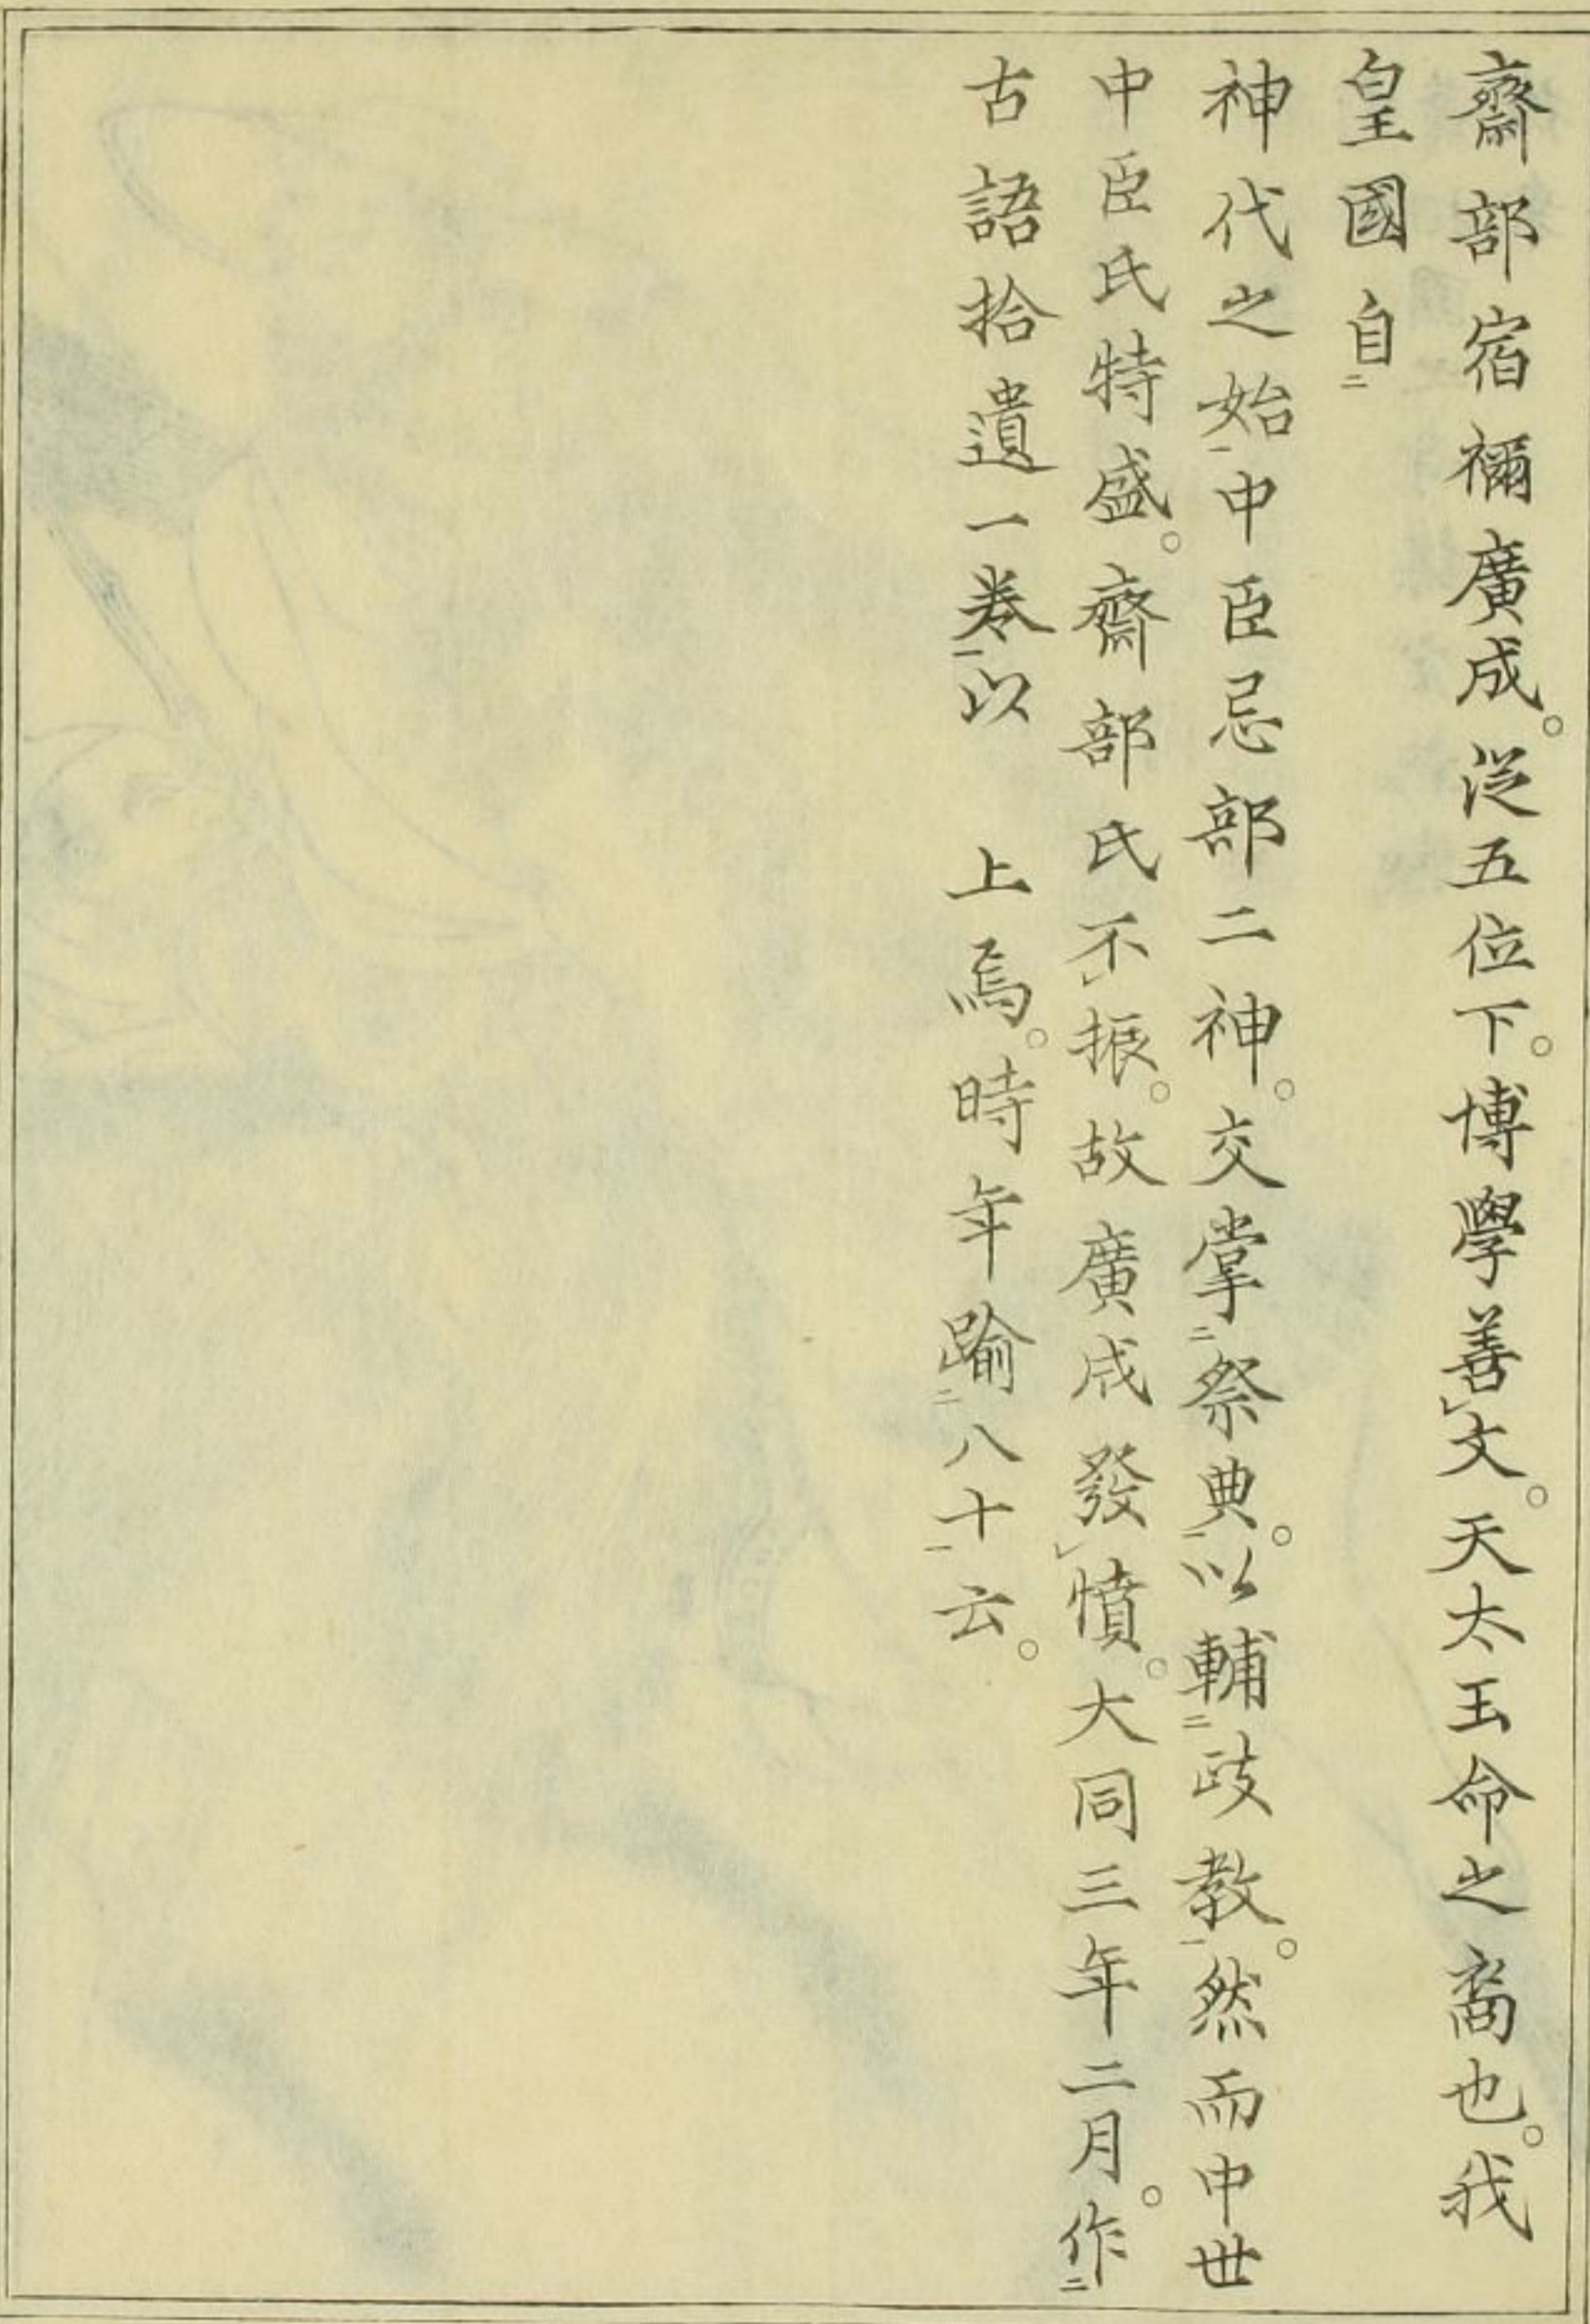 齋部宿禰廣成。從五位下。博學善㆑文。天太玉命之裔也。我
皇國自㆓
神代之始㆒中臣忌部二神。交掌㆓祭典㆒。以輔㆓政教㆒。然而中世
中臣氏特盛。齋部氏不㆑振。故廣成發㆑憤。大同三年二月。作㆓
古語拾遺一卷㆒以　上焉。時年踰㆓八十㆒云。